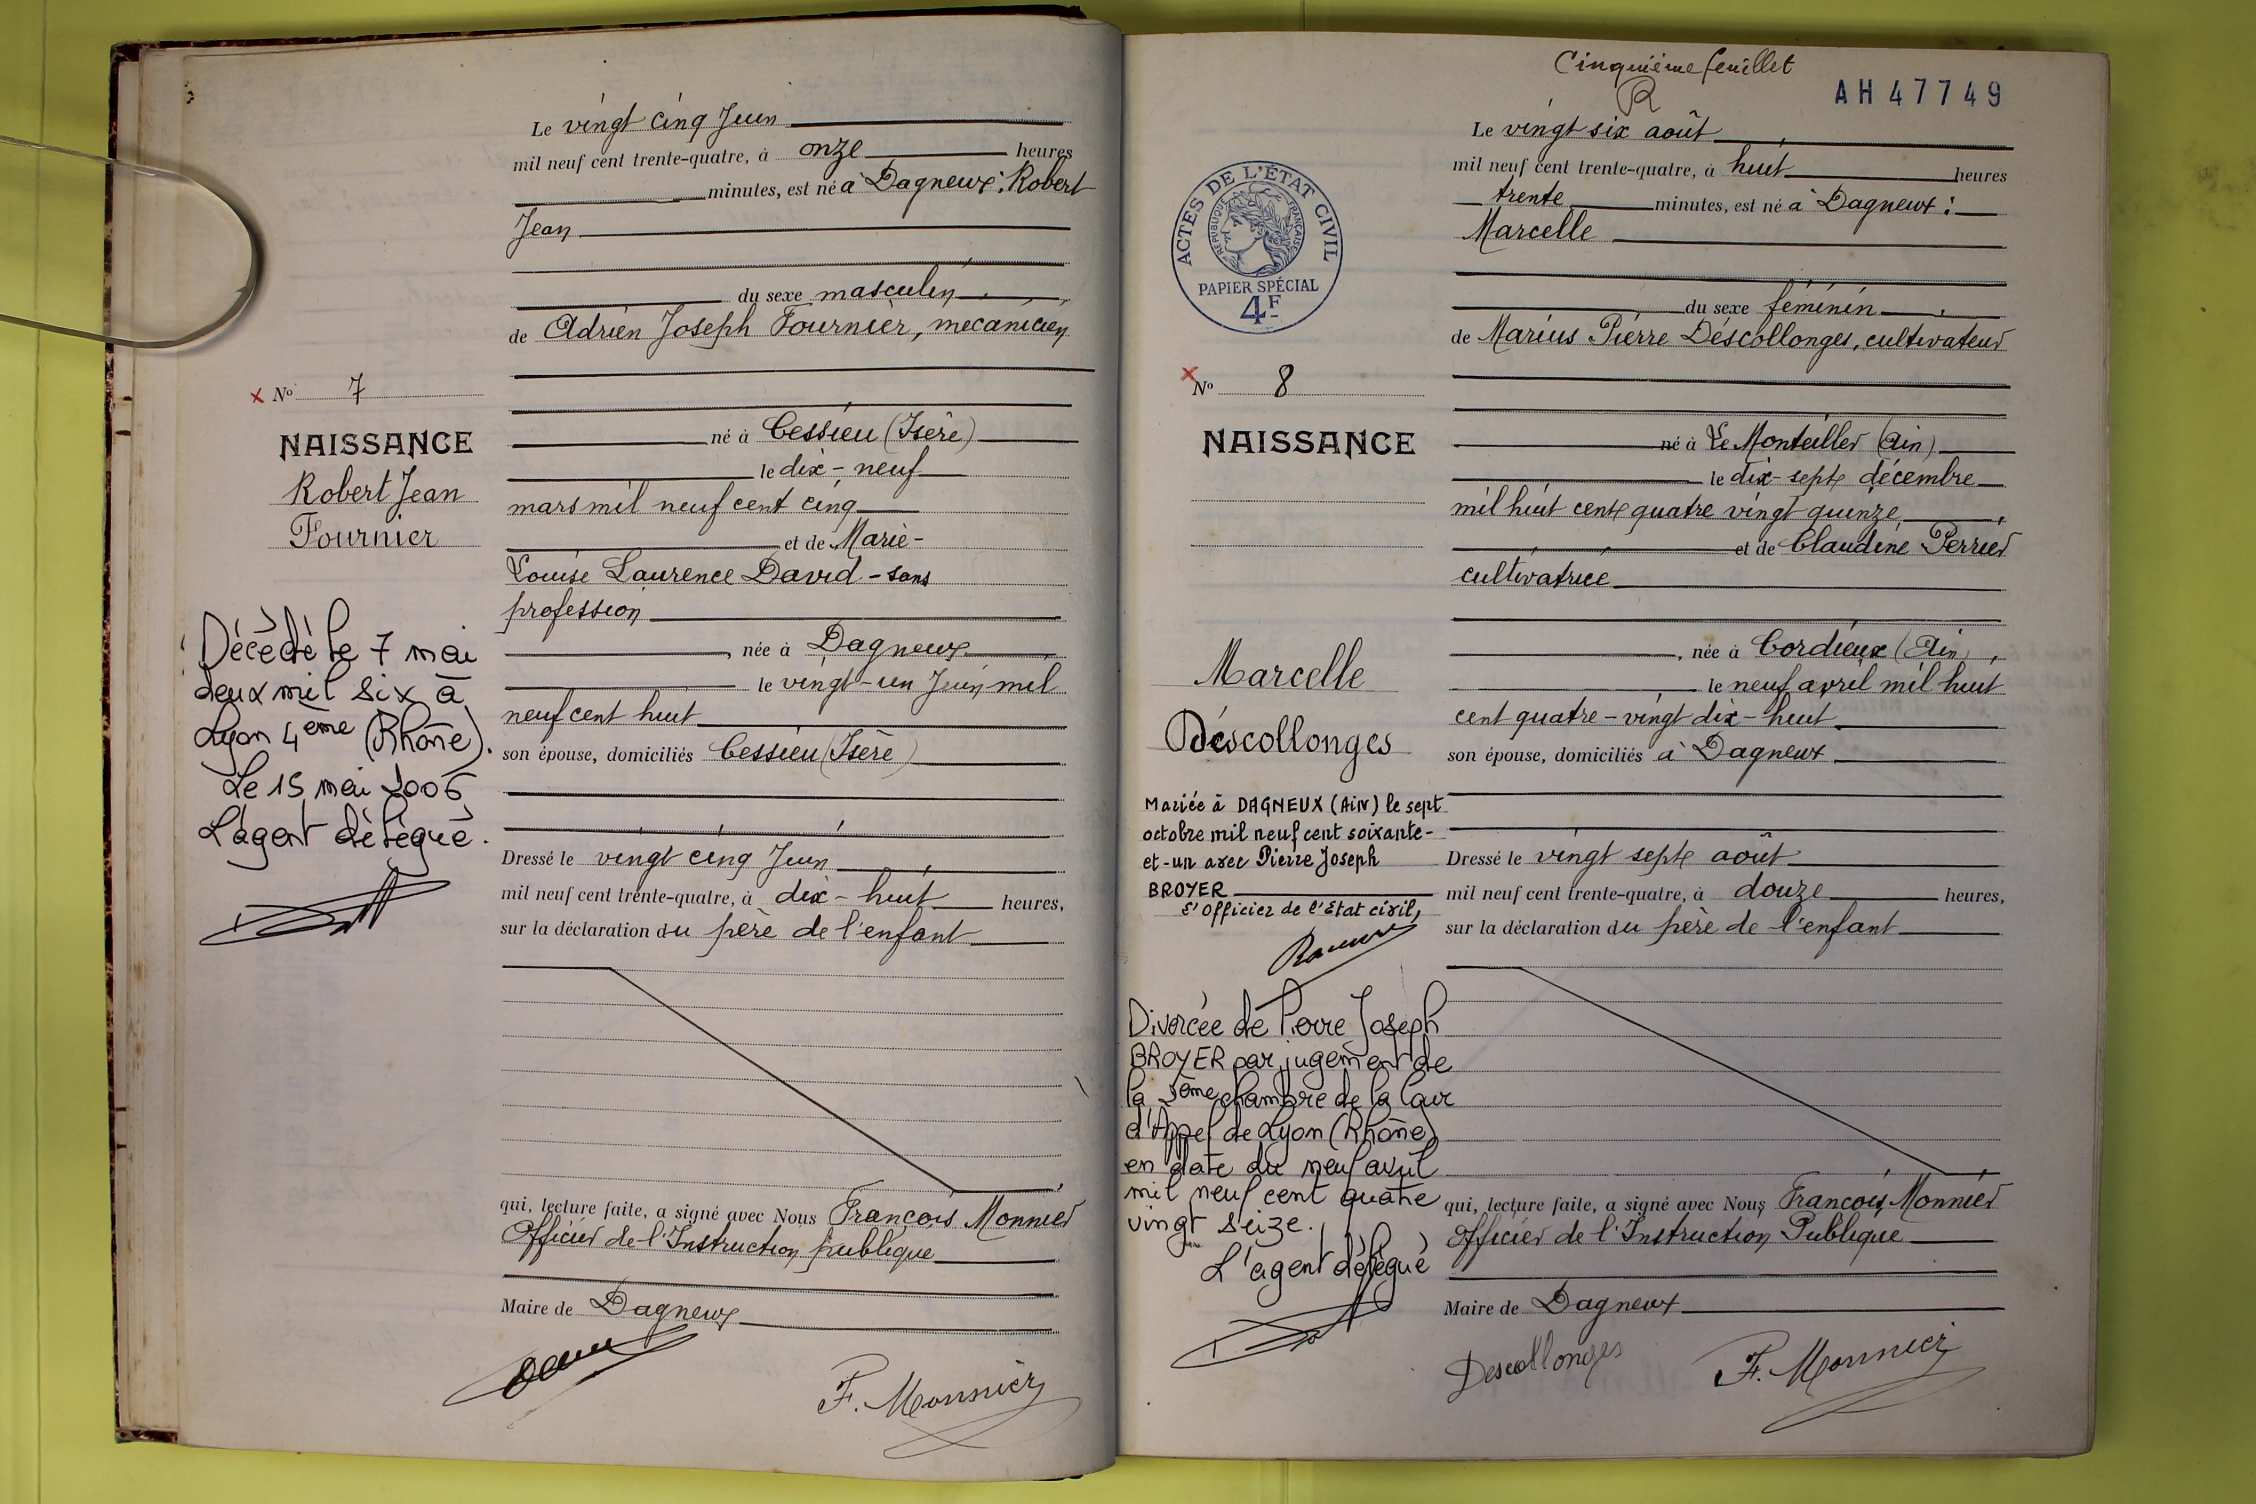 Le vingt cinq Juin
mil neuf cent trente-quatre, à onze heures
minutes, est né à Dagneux: Robert
Jean
du sexe masculin
de Adrien Joseph Fournier, mécanicien
né à Cessieu (Isère)
le dix-neuf
mars mil neuf cent cinq
et de Marie-
Louise Laurence David - sans
profession
, née à Dagneux
le vingt-un Juin mil
neuf cent huit
son épouse, domiciliés Cessieu (Isère)
Dressé le vingt cinq Juin
mil neuf cent trente-quatre, à dix-huit heures,
sur la déclaration du père de l'enfant
qui, lecture faite, a signé avec Nous François Monnier
Officier de l'Instruction publique
Maire de Dagneux
F. Monnier
× No 7
NAISSANCE
Robert Jean
Fournier
Décédé le 7 mai
deux mil six à
Lyon 4ème (Rhône).
Le 15 mai 2006
L'agent délégué.
Cinquième feuillet
R
AH 47749
ACTES DE L'ÉTAT CIVIL
RÉPUBLIQUE FRANÇAISE
PAPIER SPÉCIAL
4F
× No 8
NAISSANCE
Marcelle
Déscollonges
Mariée à DAGNEUX (Ain) le sept
octobre mil neuf cent soixante-
et-un avec Pierre Joseph
BROYER
L'Officier de l'État civil,
Divorcée de Pierre Joseph
BROYER par jugement de
la 2ème chambre de la Cour
d'Appel de Lyon (Rhône)
en date du neuf avril
mil neuf cent quatre
vingt seize.
L'agent délégué
Le vingt six août
mil neuf cent trente-quatre, à huit heures
trente minutes, est né à Dagneux:
Marcelle
du sexe féminin
de Marius Pierre Déscollonges, cultivateur
né à Le Montellier (Ain)
le dix-sept décembre
mil huit cent quatre vingt quinze
et de Claudine Perrier
cultivatrice
, née à Cordieux (Ain)
le neuf avril mil huit
cent quatre-vingt dix-huit
son épouse, domiciliés à Dagneux
Dressé le vingt sept août
mil neuf cent trente-quatre, à douze heures,
sur la déclaration du père de l'enfant
qui, lecture faite, a signé avec Nous François Monnier
Officier de l'Instruction Publique
Maire de Dagneux
Descollonges
F. Monnier